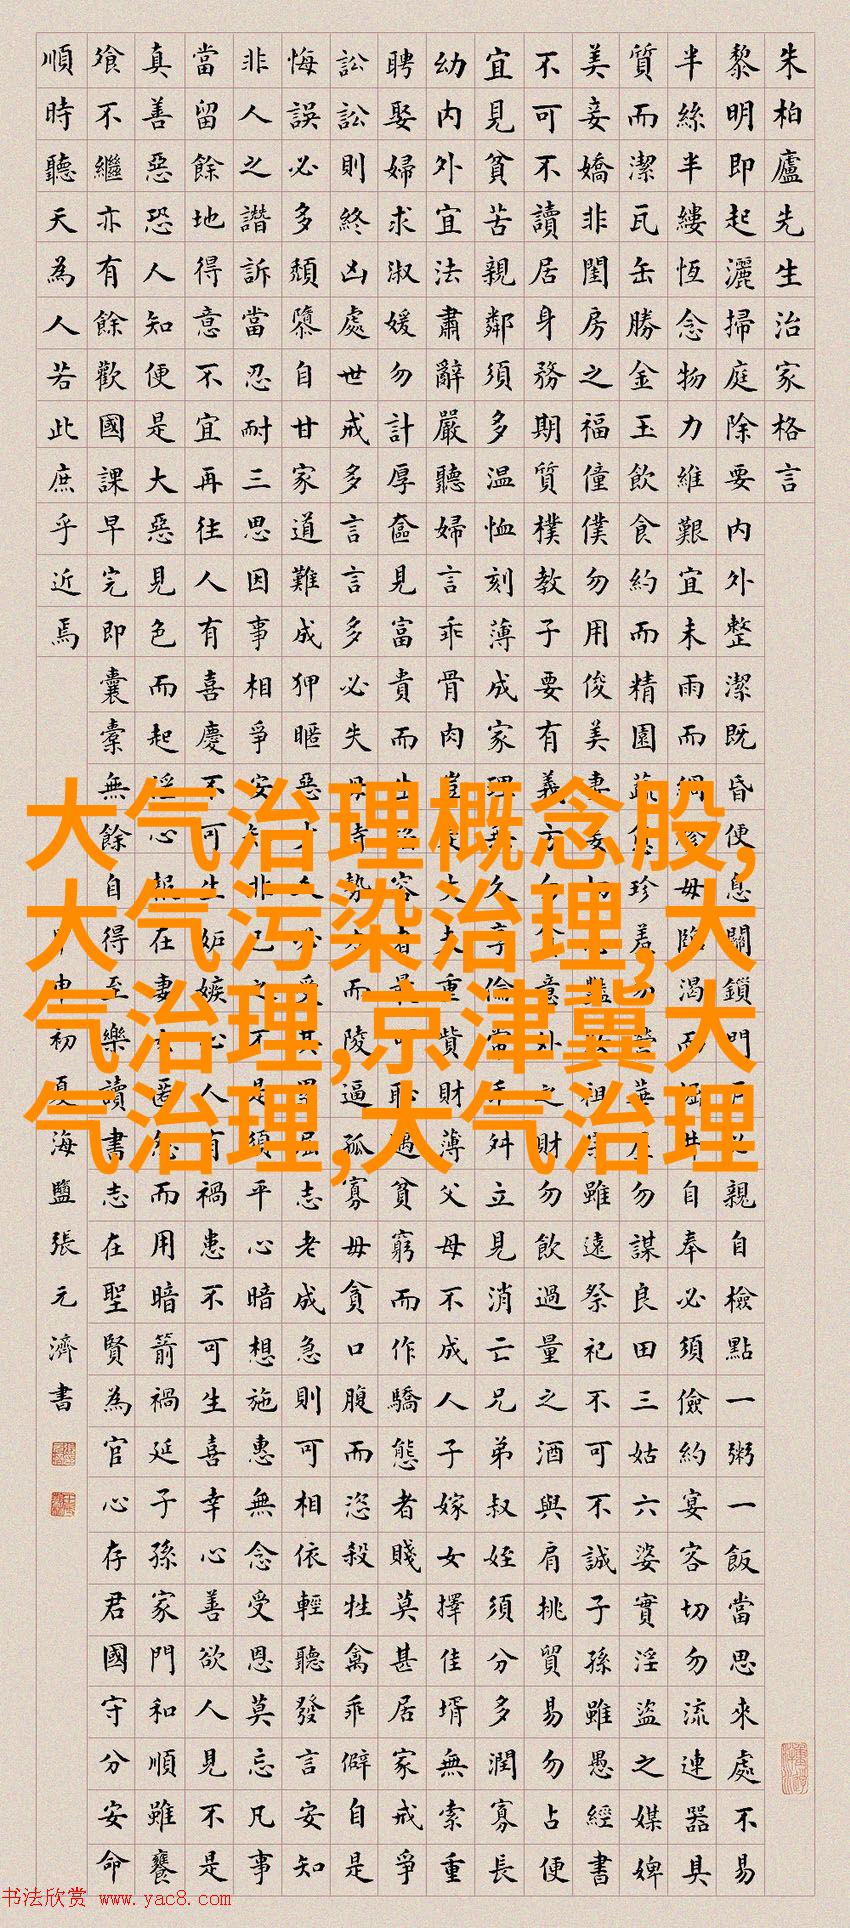 朱柏廬先生治家格言
黎明即起灑掃庭除要內外整潔既昏便息關鎖門戶必親自檢點一粥一飯當思來處不易
半絲半縷恆念物力維艱宜未雨而綢繆毋臨渴而掘井自奉必須儉約宴客切勿流連器具
質而潔瓦缶勝金玉飲食約而精園蔬愈珍羞勿營華屋勿謀良田三姑六婆實淫盜之媒婢
美妾嬌非閨房之福僮僕勿用俊美妻妾切忌豔妝祖宗雖遠祭祀不可不誠子孫雖愚經書
不可不讀居身務期質樸教子要有義方勿貪意外之財勿飲過量之酒與肩挑貿易勿占便
宜見貧苦親鄰須多温恤刻薄成家理無久享倫常乖舛立見消亡兄弟叔姪須分多潤寡長
幼內外宜法肅辭嚴聽婦言乖骨肉豈是丈夫重貲財薄父母不成人子嫁女擇佳壻無索重
聘娶婦求淑媛勿計厚奩見富貴而生諂容者最可恥遇貧窮而作驕態者賤莫甚居家戒爭
訟訟則終凶處世戒多言言多必失毋恃勢力而陵逼孤寡毋貪口腹而恣殺牲禽乖僻自是
悔誤必多頹隳自甘家道難成狎暱惡少久必受其累屈志老成急則可相依輕聽發言安知
非人之譖訴當忍耐三思因事相爭安知非己之不是須平心暗想施惠無念受恩莫忘凡事
當留餘地得意不宜再往人有喜慶不可生妒嫉心人有禍患不可生喜幸心善欲人見不是
真善惡恐人知便是大惡見色而起淫心報在妻女匿怨而用暗箭禍延子孫家門和順雖饔
飧不繼亦有餘歡國課早完即囊橐無餘自得至樂讀書志在聖賢為官心存君國守分安命
順時聽天為人若此庶乎近焉
甲申初夏海鹽張元濟書
大气治理概念股,
大气污染治理,大
气治理,京津冀大
气治理,大气治理
书法欣赏 www.yac8.com